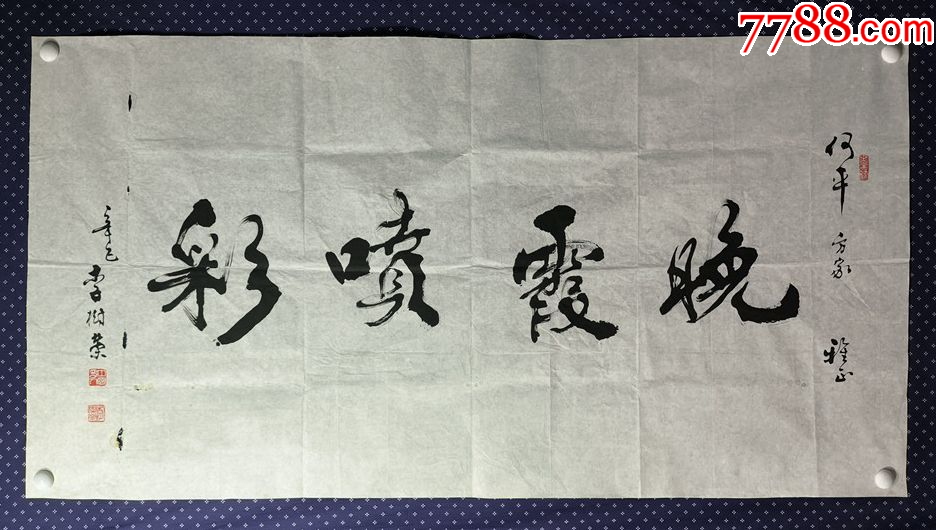 7788.com
何平 方家 雅正
晚霞喷彩
辛巳 李树荣